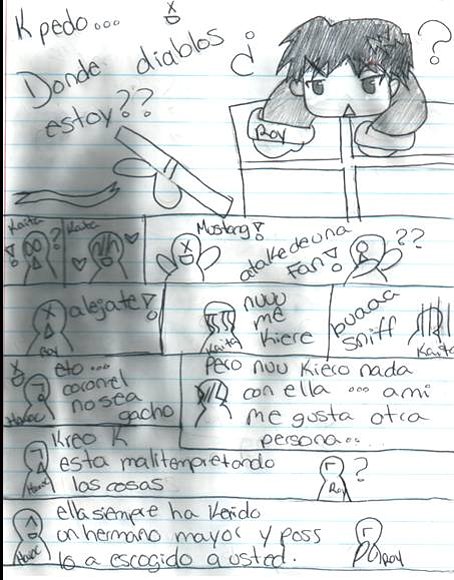 K pedo...
Donde diablos
estoy??
¿
?
Roy
Kaita
!
?
Kaita
Mustang!
atakedeuna
Fan!
??
alejate!
Roy
nuuu
me
kiere
Kaita
buaaa
sniff
Kaita
eto...
coronel
no sea
gacho
Havoc
Pero nuu kiero nada
con ella ... ami
me gusta otra
persona...
Kreo K
esta malitempretando
las cosas
Havoc
Roy
?
ella siempre ha kerido
un hermano mayor y poss
lo a escogido a usted.
Havoc
Roy